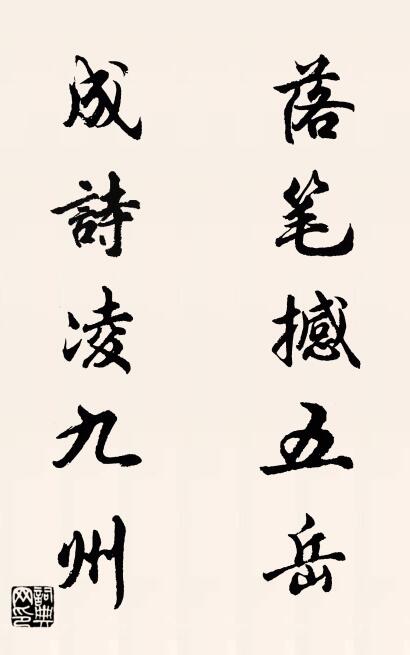 落笔撼五岳
成詩凌九州
詞典网印